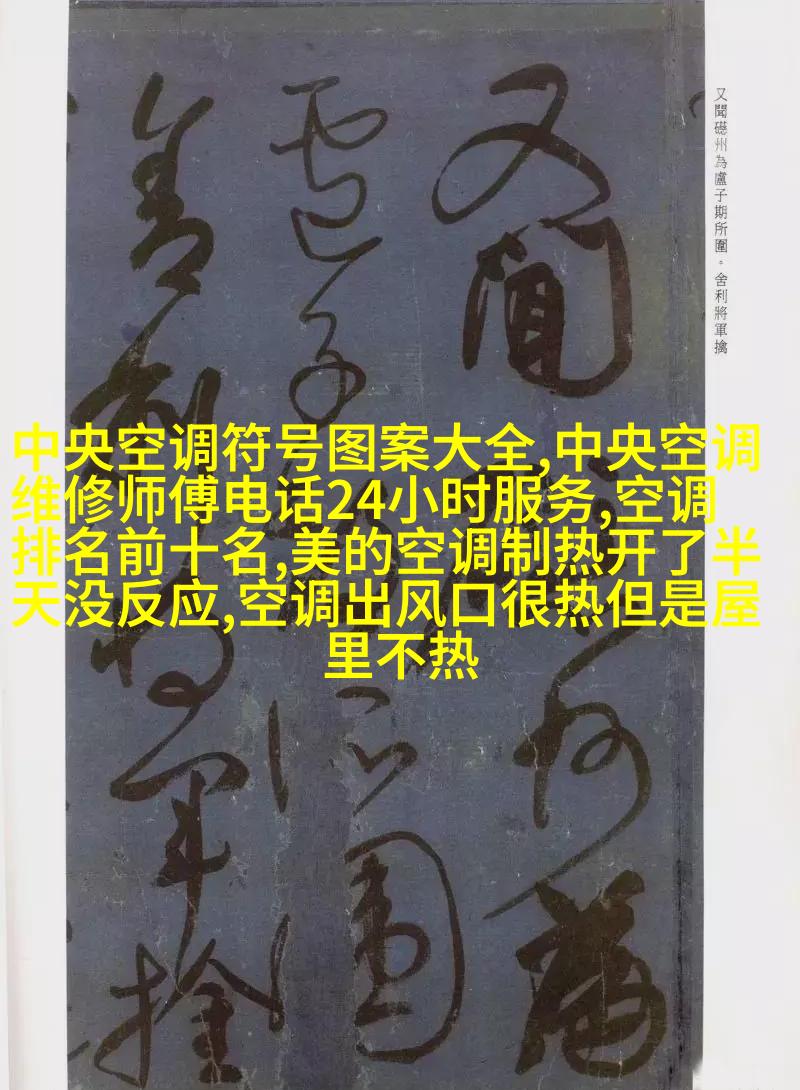 又聞礠州為盧子期所圍。舍利將軍擒
又聞礠州為
盧子期所圍
舍利將軍擒
中央空调符号图案大全,中央空调
维修师傅电话24小时服务,空调
排名前十名,美的空调制热开了半
天没反应,空调出风口很热但是屋
里不热